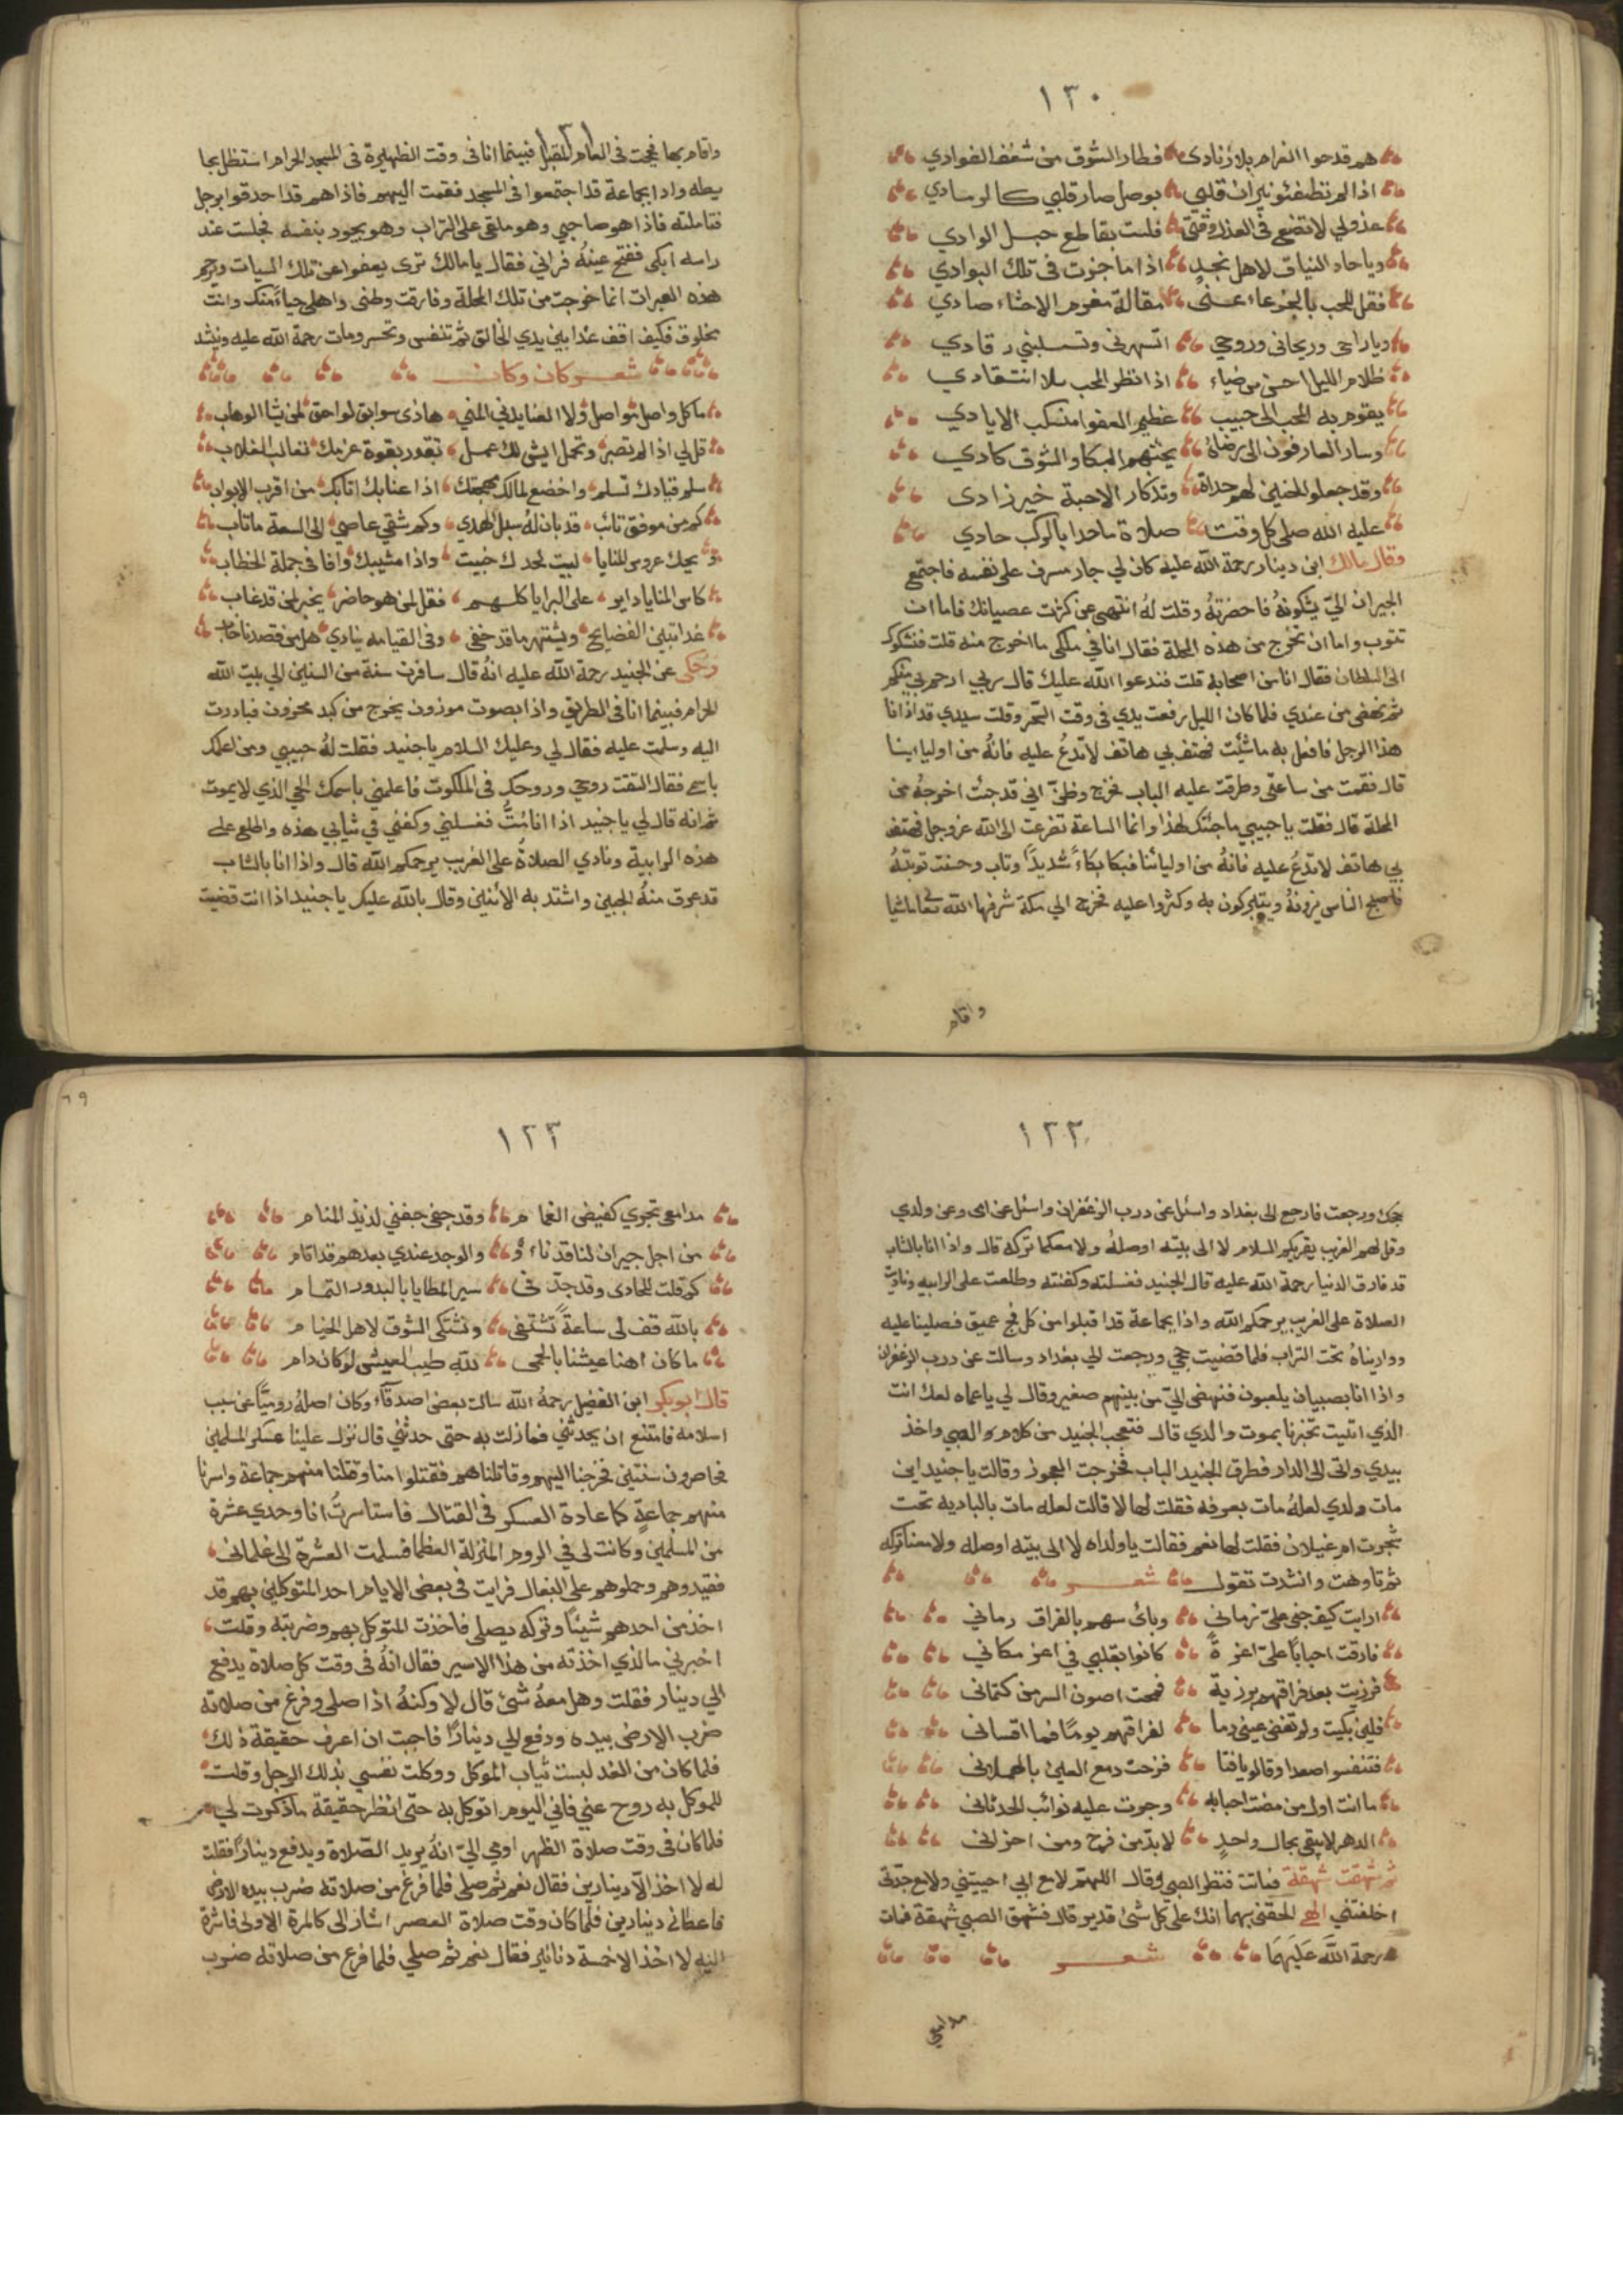 ١٣٠
هم قدحوا الغرام بلا زنادى فطار الشوق من شغف الفوادي
اذا لم تطفئو نيران قلبي بوصل صار قلبي كالوسادي
عذولي لا تضع في العذل وقتى فلست بقاطع حبل الوادي
ويا حاد النياق لاهل نجد اذا ما جزت فى تلك البوادي
فقل للحب بالجزعاء عنى مقالة مغرم الاحشاء صادي
ويا راحى وريحانى وروحي اتسهرنى وتسلبني رقادي
ظلام الليل احسن من ضياء اذا نظر المحب بلا انتقادي
يقوم به المحب الى حبيب عظيم العفو منسكب الايادي
وسار العارفون الى رضاه يحثهم البكا والشوق كادي
وقد جعلو الحنين لهم حداة وتذكار الاحبة خير زادى
عليه الله صلى كل وقت صلاة ما حدا بالركب حادي
وقال مالك ابن دينار رحمة الله عليه كان لي جار مسرف على نفسه فاجتمع
الجيران اليّ يشكونهُ فاحضرتهُ وقلت لهُ انتهى عن كثرت عصيانك فاما ان
تتوب واما ان تخرج من هذه المحلة فقال انا في ملكى ما اخرج منه قلت فنشكوك
الى السلطان فقال انا من اصحابه قلت فندعوا الله عليك قال ربي ارحم بي منكم
ثم نهض من عندي فلما كان الليل رفعت يدي فى وقت السحر وقلت سيدي قد اذانا
هذا الرجل فافعل به ما شئت فهتف بي هاتف لا تدعُ عليه فانهُ من اوليائنا
قال فقمت من ساعتى وطرقت عليه الباب فخرج وظنّ اني قد جئت اخرجهُ من
المحلة قال فقلت يا حبيبي ما جئتك لهذا وانما الساعة تضرعت الى الله عز وجل فهتف
بي هاتف لا تدعُ عليه فانهُ من اوليائنا فبكا بكاءً شديدًا وتاب وحسنت توبتهُ
فاصبح الناس يزرونهُ ويتبركون به وكثروا عليه فخرج الي مكة شرفها الله تعا ماشيا
واقام
واقام بها فحجت فى العام المقبل فبينما انا فى وقت الظهيرة فى المسجد الحرام استظل بحا
يطه واذا بجماعة قد اجتمعوا فى المسجد فقمت اليهم فاذا هم قد احدقوا برجل
فتاملته فاذا هو صاحبي وهو ملقى على التراب وهو يجود بنفسه فجلست عند
راسه ابكى ففتح عينهُ فرانى فقال يا مالك ترى يعفوا عن تلك السيات ويرحم
هذه العبرات انما خرجت من تلك المحلة وفارقت وطنى واهلى حياءً منك وانت
مخلوق فكيف اقف غدا بين يدي الخالق ثم تنفس وتحسر ومات رحمة الله عليه وينشد
شعر كان وكان
ما كل واصل تواصل ولا العنا يدني المني هاذى سوابق لواحق لمن يشا الوهاب
قل لي اذا لم تصبر وتحمل ايش لك عمل تقدر بقوة عزمك تغالب الغلاب
سلم قيادك تسلم واخضع لمالك مهجتك اذا عنا بك اتا بك من اقرب الابواب
كم من موفق تائب قد بان لهُ سبل الهدي وكم شقي عاصي الى السعة ما تاب
ويحك عروس المنايا لبيت لحدك خبيت واذا مشيبك وافا في جملة الخطاب
كاس المنايا داير على البرايا كلهم فقل لمن هو حاضر يخبر لمن قد غاب
غدا تبين الفضايح ويشتهر ما قد خفى وفى القيامه ينادي هل من قصدنا خاب
وحكى عن الجنيد رحمة الله عليه انهُ قال سافرت سنة من السنين الي بيت الله
الحرام فبينما انا فى الطريق واذا بصوت موزون يخرج من كبد محزون فبادرت
اليه وسلمت عليه فقال لي وعليك السلام يا جنيد فقلت لهُ حبيبي ومن اعلمك
باسمى فقال التقت روحي وروحك فى الملكوت فاعلمني باسمك الحي الذي لا يموت
ثم انه قال لي يا جنيد اذا انا متُّ فغسلني وكفني في ثيابي هذه واطلع على
هذه الرابية ونادي الصلاةُ على الغريب يرحمكم الله قال واذا انا بالشاب
قد عرق منهُ الجبين واشتد به الأنين وقال بالله عليك يا جنيد اذا انت قضيت
١٢٢
حجك ورجعت فارجع الى بغداد واسئل عن درب الزعفران واسئل عن امى وعن ولدي
وقل لهم الغريب يقريكم السلام لا الى بيته اوصلهُ ولا معكما تركه قال واذا انا بالشاب
قد فارق الدنيا رحمة الله عليه قال الجنيد فغسلته وكفنته وطلعت على الرابيه وناديت
الصلاة على الغريب يرحمكم الله واذا بجماعة قد اقبلوا من كل فج عميق فصلينا عليه
وواريناهُ تحت التراب فلما قضيت حجي ورجعت الي بغداد وسالت عن درب الزعفران
واذا انا بصبيان يلعبون فنهض اليّ من بينهم صغير وقال لي يا عماه لعلك انت
الذي اتيت تخبرنا بموت والدي قال فتعجب الجنيد من كلام الصبي واخذ
بيدي واتى الى الدار فطرق الجنيد الباب فخرجت العجوز وقالت يا جنيد اين
مات ولدي لعلهُ مات بعرفه فقلت لها لا قالت لعله مات بالباديه تحت
شجرت ام غيلان فقلت لها نعم فقالت يا ولداه لا الى بيته اوصله ولا معنا تركه
ثم تاوهت وانشدت تقول شعر
ارايت كيف جنى عليّ زماني وباى سهم بالفراق رماني
فارقت احبابًا عليّ اعزةً كانوا بقلبي في اعز مكاني
فرزيت بعد فراقهم برزية فمحت اصون السر من كتمانى
فلئن بكيت ولو تفنى عينى دما لفراقهم يومًا فما اقسانى
فتنفسوا صعدا وقالو يا فتا فزحت دمع العين بالهملانى
ما انت اول من مضت احبابه وجرت عليه نوائب الحدثانى
الدهر لا يبقى بحال واحدٍ لا بدّ من فرح ومن احزانى
ثم شهقت شهقة فماتت فنظر الصبي وقال اللهم لا مع ابي احييتني ولا مع جدتى
اخلفتني الهى الحقنى بهما انك على كل شئ قدير قال فشهق الصبي شهقة فمات
رحمة الله عَلَيهمَا شعر
مدامعي
٦٩
١٢٣
مدامعى تجري كفيض الغمام وقد جفى جفني لذيذ المنام
من اجل جيران لنا قد ناءوُ والوجد عندي بعدهم قد اقام
كم قلت للحادى وقد جدّ في سير المطايا بالبدور التمام
بالله قف لى ساعةً نشتفى ونشتكى الشوق لاهل الخيام
ما كان اهنا عيشنا بالحمى لله طيب العيش لو كان دام
قال ابو بكر ابن الفضل رحمهُ الله سالت بعض اصدقآء وكان اصلهُ روميًّا عن سبب
اسلامه فامتنع ان يحدثني فما زلت به حتى حدثني قال نزل علينا عسكر المسلمين
فحاصرون سنتين فخرجنا اليهم وقاتلناهم فقتلوا منا وقتلنا منهم جماعة واسرنا
منهم جماعةٍ كما عادة العسكر فى القتال فاستاسرتُ انا وحدي عشرة
من المسلمين وكانت لى في الروم المنزلة العظما فسلمت العشرة الى غلمانى
فقيدوهم وحملوهم على البغال فرايت فى بعض الايام احد المتوكلين بهم قد
اخذ من احدهم شيئًا وتركه يصلى فاخذت المتوكل بهم وضربته وقلت
اخبرني ما الذي اخذته من هذا الاسير فقال انهُ فى وقت كل صلاة يدفع
الي دينار فقلت وهل معهُ شئ قال لا ولكنهُ اذا صلى وفرغ من صلاته
ضرب الارض بيده ودفع الي دينارًا فاحببت ان اعرف حقيقة ذلك
فلما كان من الغد لبست ثياب الموكل ووكلت نفسي بذلك الرجل وقلت
للموكل به روح عني فاني اليوم اتوكل به حتى انظر حقيقة ما ذكرت لي
فلما كان فى وقت صلاة الظهر اوحى اليّ انهُ يريد الصّلاة ويدفع دينارًا فقلت
له لا اخذ الّا دينارين فقال نعم ثم صلى فلما فرغ من صلاته ضرب بيده الارض
فاعطاني دينارين فلما كان وقت صلاة العصر اشار الى كالمرة الاولى فاشرة
اليه لا اخذ الا خمسة دنانير فقال نعم ثم صلي فلما فرغ من صلاته ضرب